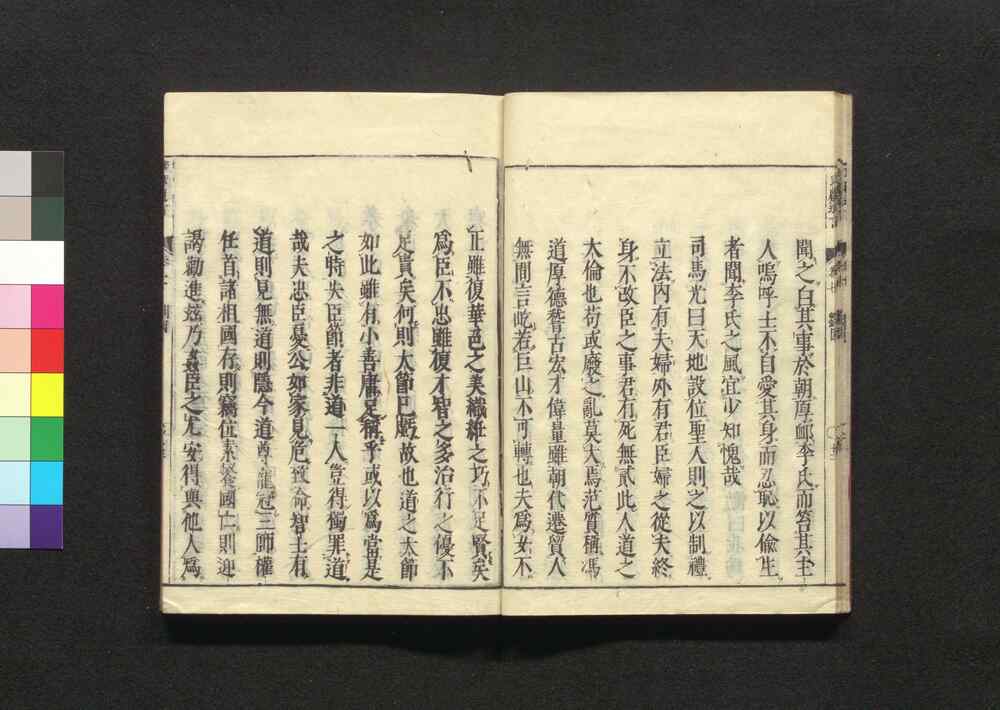 聞之白其事於朝厚䘏李氏而笞其主
人嗚呼士不自愛其身而忍恥以偷生
者聞李氏之風宜少知愧哉
司馬光曰天地設位聖人則之以制禮
立法內有夫婦外有君臣婦之從夫終
身不改臣之事君有死無貳此人道之
大倫也苟或廢之亂莫大焉范質稱馮
道厚德稽古宏才偉量雖朝代遷貿人
無間言屹若巨山不可轉也夫爲女不
正雖復華色之美織紝之巧不足賢矣
爲臣不忠雖復才智之多治行之優不
足貴矣何則大節已虧故也道之大節
如此雖有小善庸足稱乎或以爲當是
之時失臣節者非道一人豈得獨罪道
哉夫忠臣憂公如家見危致命智士有
道則見無道則隱今道尊寵冠三師權
任首諸相國存則竊位素餐國亡則迎
謁勸進茲乃姦臣之尤安得與他人爲